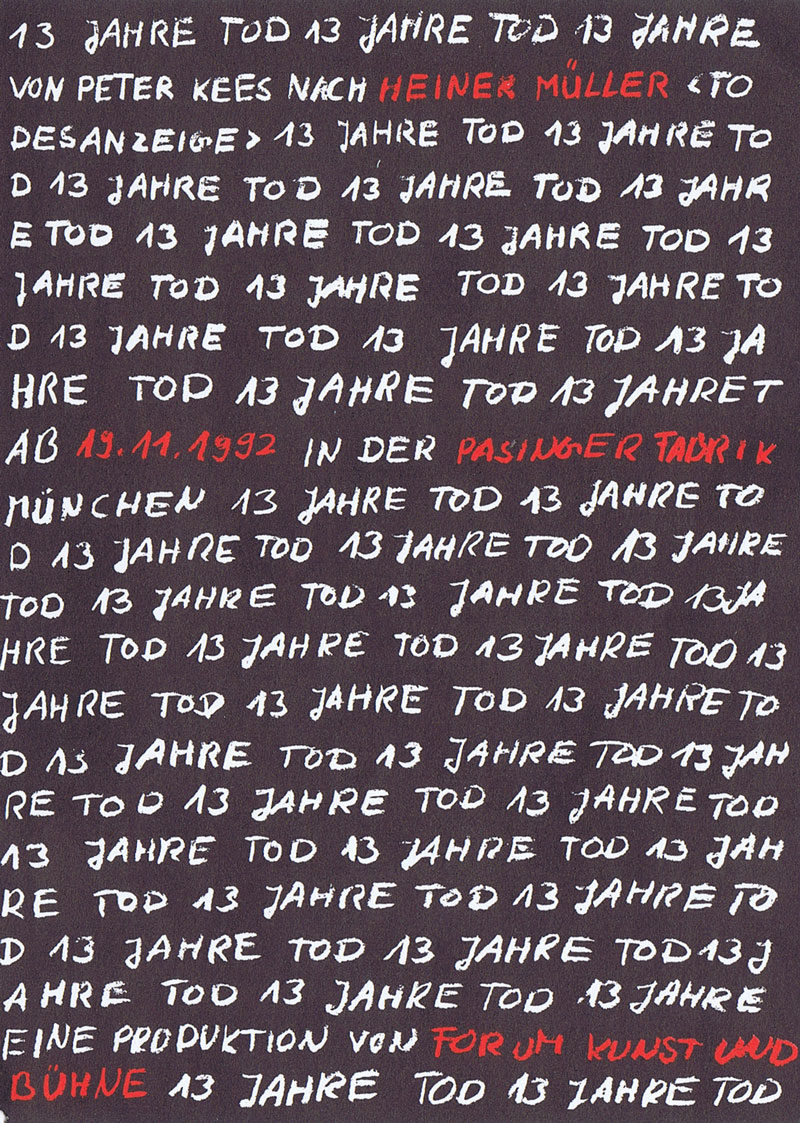 13 JAHRE TOD 13 JAHRE TOD 13 JAHRE
VON PETER KEES NACH HEINER MÜLLER <TO
DESANZEIGE> 13 JAHRE TOD 13 JAHRE TO
D 13 JAHRE TOD 13 JAHRE TOD 13 JAHR
E TOD 13 JAHRE TOD 13 JAHRE TOD 13
JAHRE TOD 13 JAHRE TOD 13 JAHRE TO
D 13 JAHRE TOD 13 JAHRE TOD 13 JA
HRE TOD 13 JAHRE TOD 13 JAHRET
AB 19.11.1992 IN DER PASINGER FABRIK
MÜNCHEN 13 JAHRE TOD 13 JAHRE TO
D 13 JAHRE TOD 13 JAHRE TOD 13 JAHRE
TOD 13 JAHRE TOD 13 JAHRE TOD 13 JA
HRE TOD 13 JAHRE TOD 13 JAHRE TOD 13
JAHRE TOD 13 JAHRE TOD 13 JAHRE TO
D 13 JAHRE TOD 13 JAHRE TOD 13 JAH
RE TOD 13 JAHRE TOD 13 JAHRE TOD
13 JAHRE TOD 13 JAHRE TOD 13 JAH
RE TOD 13 JAHRE TOD 13 JAHRE TO
D 13 JAHRE TOD 13 JAHRE TOD 13 J
AHRE TOD 13 JAHRE TOD 13 JAHRE
EINE PRODUKTION VON FORUM KUNST UND
BÜHNE 13 JAHRE TOD 13 JAHRE TOD